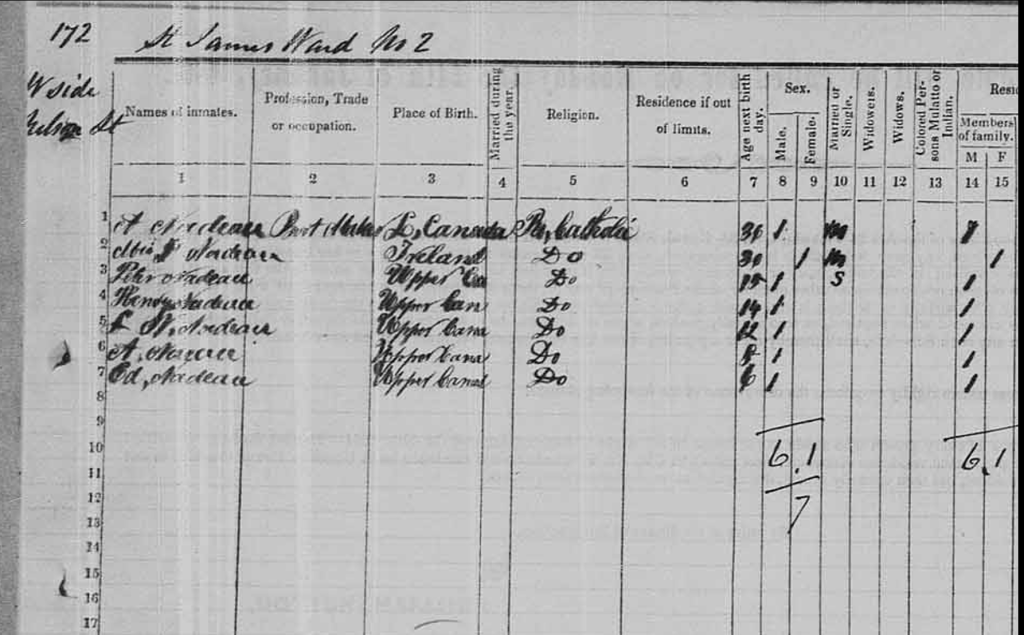 172
St James Ward No 2
W side
St
Names of inmates.
Profession, Trade or occupation.
Place of Birth.
Married during the year.
Religion.
Residence if out of limits.
Age next birth day.
Sex.
Male.
Female.
Married or Single.
Widowers.
Widows.
Colored Persons Mulatto or Indian.
Members of family.
M F
1 2 3 4 5 6 7 8 9 10 11 12 13 14 15
1 A Nadeau L. Canada Catholic 1 m 1
2 Nadeau Ireland Do 30 1 m 1
3 Peter Nadeau Upper Can Do 15 1 S 1
4 Henry Nadeau Upper Can Do 14 1 1
5 Nadeau Upper Cana Do 12 1 1
6 A, Upper Cana Do 1 1
7 Ed, Nadeau Upper Canad Do 6 1 1
8
9
10 6 . 1 6 . 1
11
12 7
13
14
15
16
17